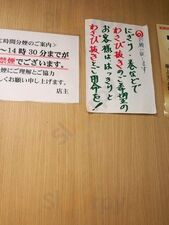 時間分煙のご案内〉
～14時30分までが
禁煙でございます。
煙にご理解とご協力
しくお願い申し上げます。
店主
お願い致します
にぎり・巻などで
わさび抜きのご希望の
お客様ははっきりと
わさび抜きとご用命を!